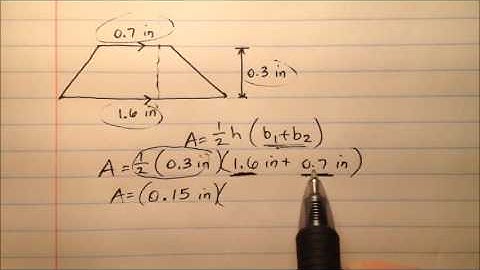 0.7 in
0.3 in
1.6 in
A = 1/2 h (b₁ + b₂)
A = 1/2 (0.3 in)(1.6 in + 0.7 in)
A = (0.15 in)(